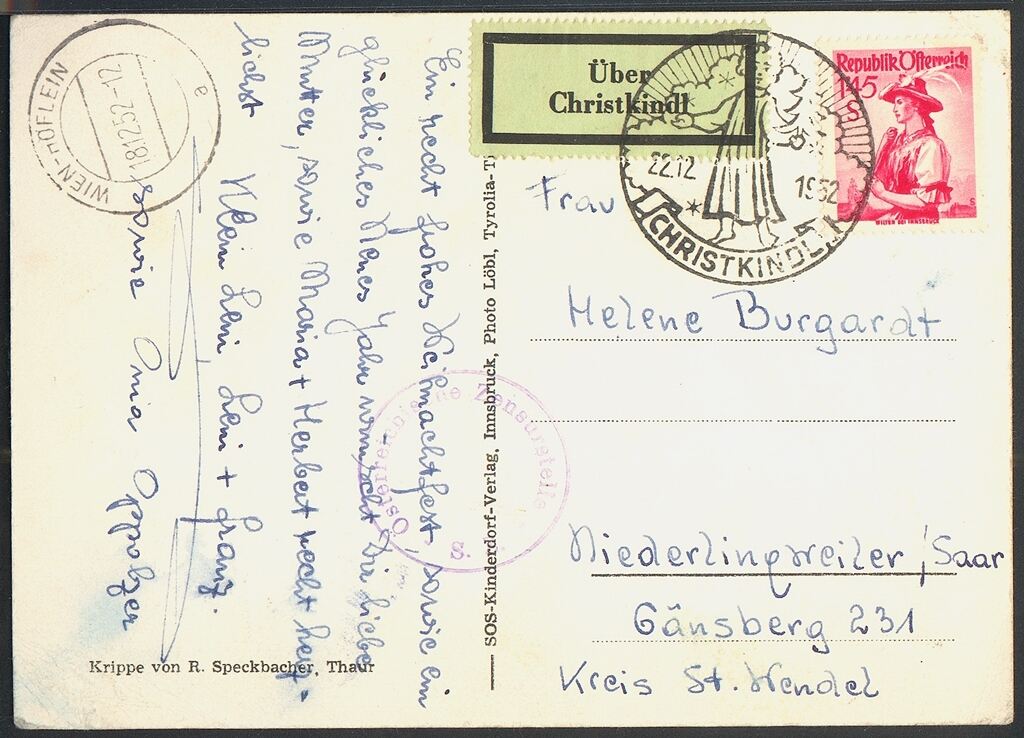 WIEN-HÖFLEIN
18.12.52-12
e
Über
Christkindl
22.12
1952
CHRISTKINDL
Republik Österreich
1'45
S
WILTEN BEI INNSBRUCK
Ein recht frohes Weihnachtfest, sowie ein
glückliches Neues Jahr wünscht Dir liebe
Mutter, sowie Maria + Herbert recht herz-
lichst
Klein Leni Leni + Franz.
sowie Oma Oppolzer
Österreichische Zensurstelle
S.
SOS-Kinderdorf-Verlag, Innsbruck, Photo Löbl, Tyrolia-T
Krippe von R. Speckbacher, Thaur
Frau
Helene Burgardt
Niederlinxweiler, Saar
Gänsberg 231
Kreis St. Wendel